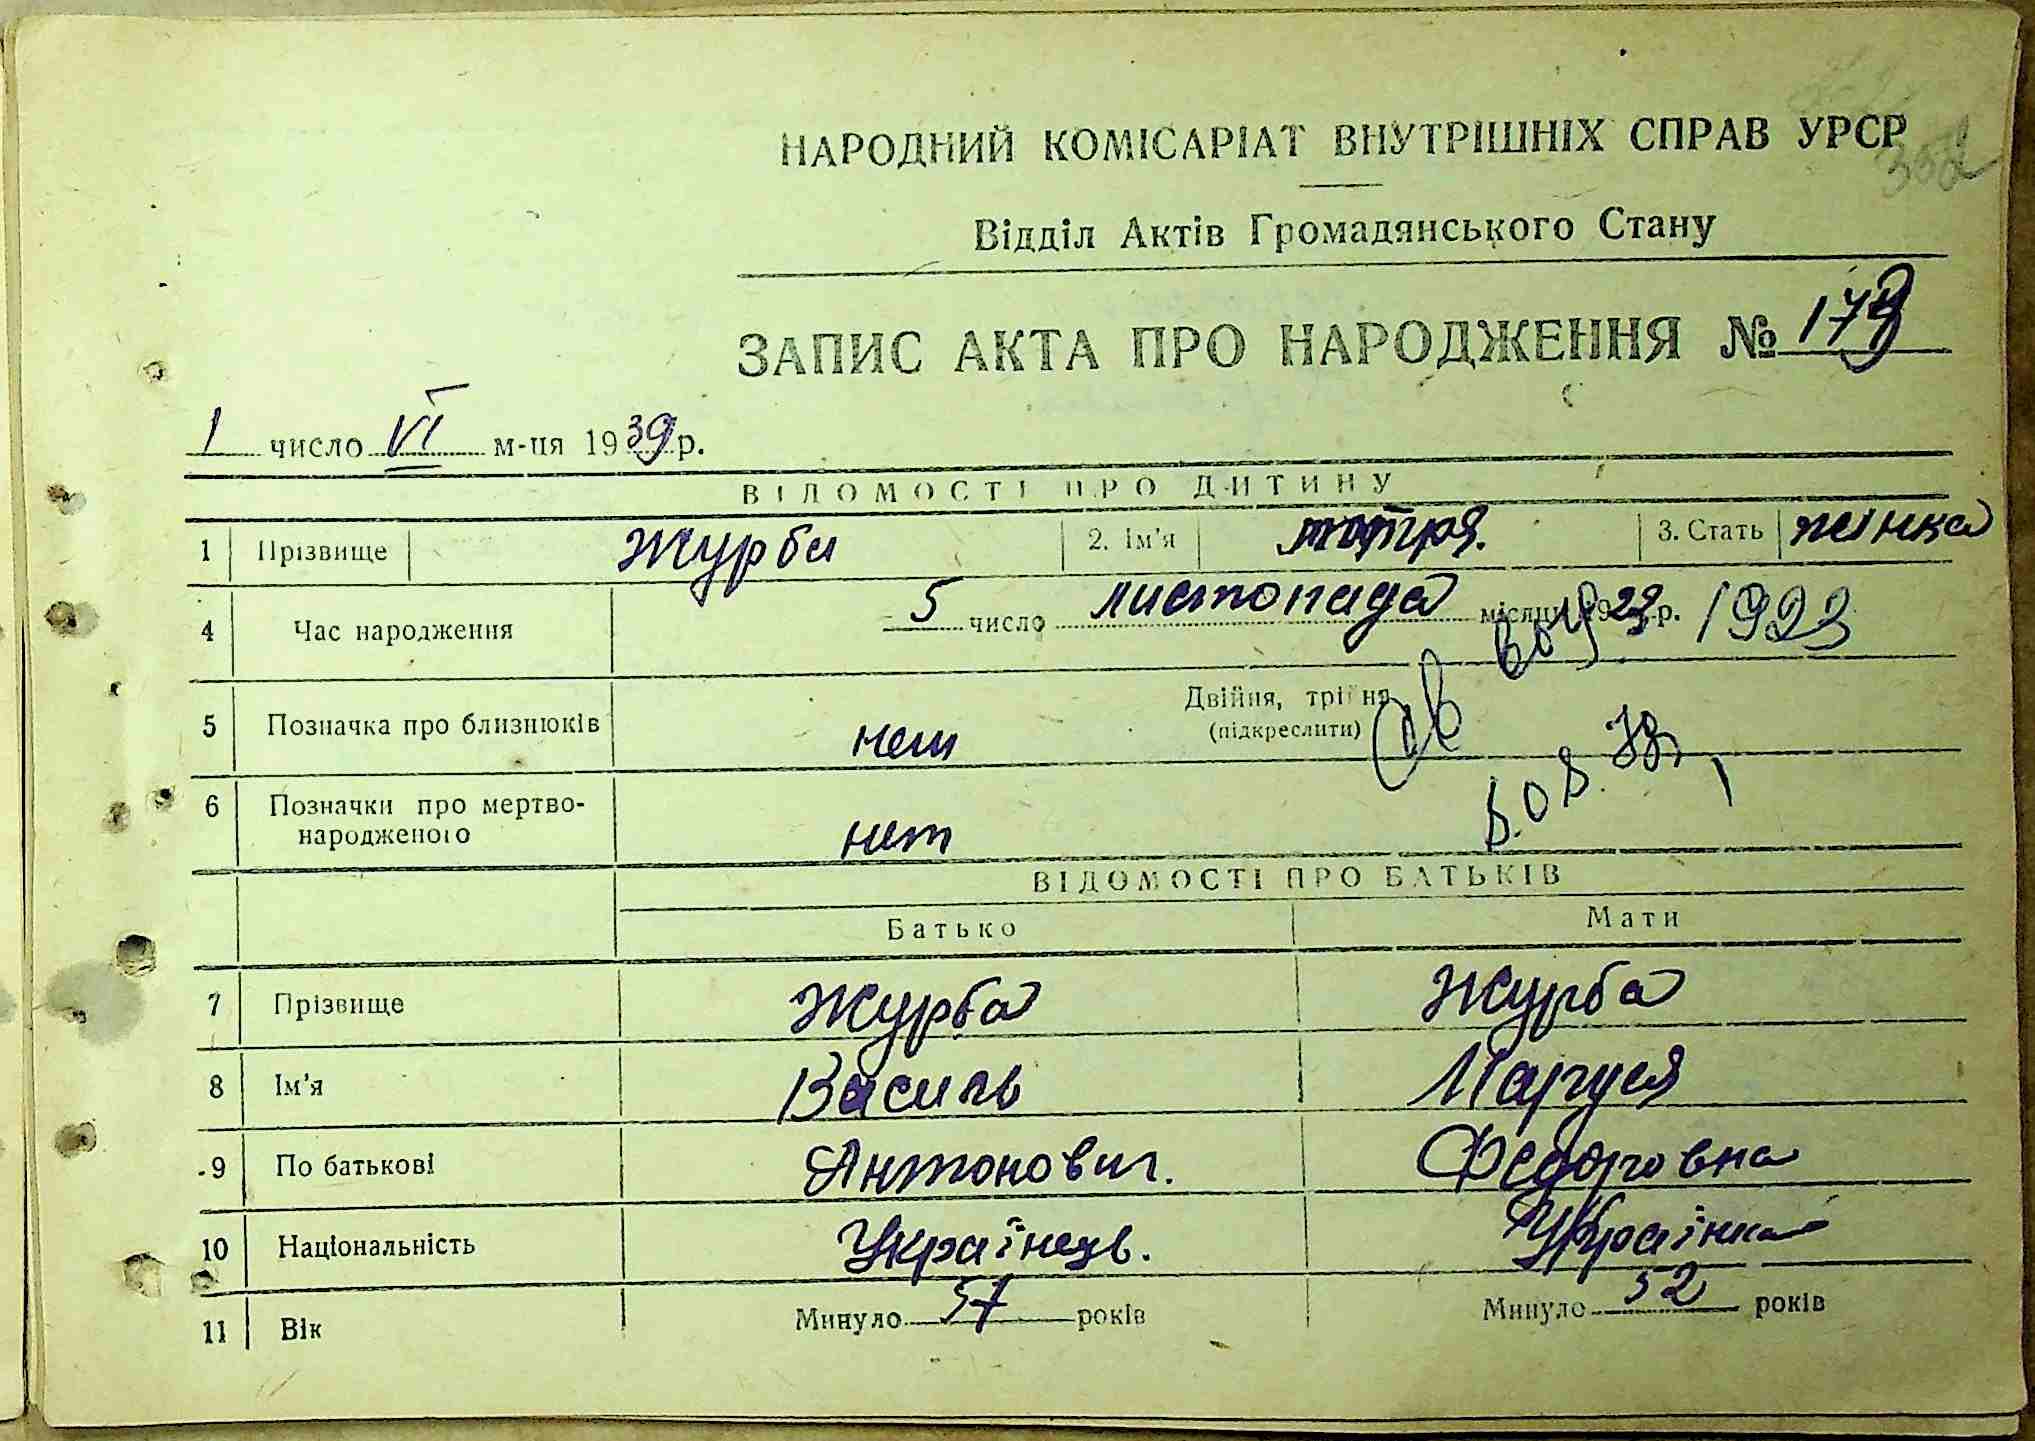 352
НАРОДНИЙ КОМІСАРІАТ ВНУТРІШНІХ СПРАВ УРСР
Відділ Актів Громадянського Стану
ЗАПИС АКТА ПРО НАРОДЖЕННЯ №
1 число VI м-ця 1939 р.
ВІДОМОСТІ ПРО ДИТИНУ
1 Прізвище Журба 2. Ім'я мотря. 3. Стать жінка
4 Час народження 5 число листопада місяця 1923 р. 1923
5 Позначка про близнюків нет Двійня, трійня
(підкреслити)
6 Позначки про мертво-
народженого нет
ВІДОМОСТІ ПРО БАТЬКІВ
Батько Мати
7 Прізвище Журба Журба
8 Ім'я Василь Маруся
9 По батькові Антонович. Федоровна
10 Національність Українець. Українка
11 Вік Минуло 57 років Минуло 52 років